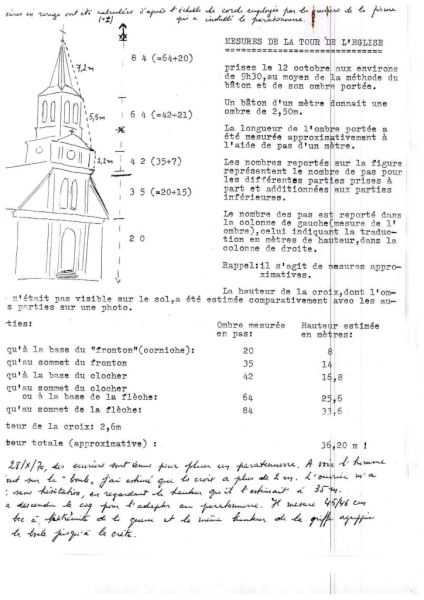 sures en rouge ont été calculées d'après l'échelle de corde employée par les ouvriers de la firme
(±) qui a installé le paratonnerre.
MESURES DE LA TOUR DE L'EGLISE
prises le 12 octobre aux environs
de 9h30,au moyen de la méthode du
bâton et de son ombre portée.
Un bâton d'un mètre donnait une
ombre de 2,50m.
La longueur de l'ombre portée a
été mesurée approximativement à
l'aide de pas d'un mètre.
Les nombres reportés sur la figure
représentent le nombre de pas pour
les différentes parties prises à
part et additionnées aux parties
inférieures.
Le nombre des pas est reporté dans
la colonne de gauche(mesure de l'
ombre),celui indiquant la traduc-
tion en mètres de hauteur,dans la
colonne de droite.
Rappel:il s'agit de mesures appro-
ximatives.
La hauteur de la croix,dont l'om-
n'était pas visible sur le sol,a été estimée comparativement avec les au-
s parties sur une photo.
8 4 (=64+20)
7,2m
6 4 (=42+21)
5,5m
4 2 (35+7)
1,2m
3 5 (=20+15)
2 0
ties: Ombre mesurée Hauteur estimée
en pas: en mètres:
qu'à la base du "fronton"(corniche): 20 8
qu'au sommet du fronton 35 14
qu'à la base du clocher 42 16,8
qu'au sommet du clocher
ou à la base de la flèche: 64 25,6
qu'au sommet de la flèche: 84 33,6
teur de la croix: 2,6m
teur totale (approximative) : 36,20 m !
28/X/70, des ouvriers sont venus pour placer un paratonnerre. A voir l'homme
ont sur la "boule, j'ai estimé que la croix a plus de 2 m. L'ouvrier m'a
sans hésitation, en regardant la hauteur qu'il l'estimait à 35 m.
a descendu le coq pour l'adapter au paratonnerre. Il mesure 45/46 cm
bec à extrémité de la queue et la même hauteur de la griffe agrippée
la boule jusqu'à la crête.